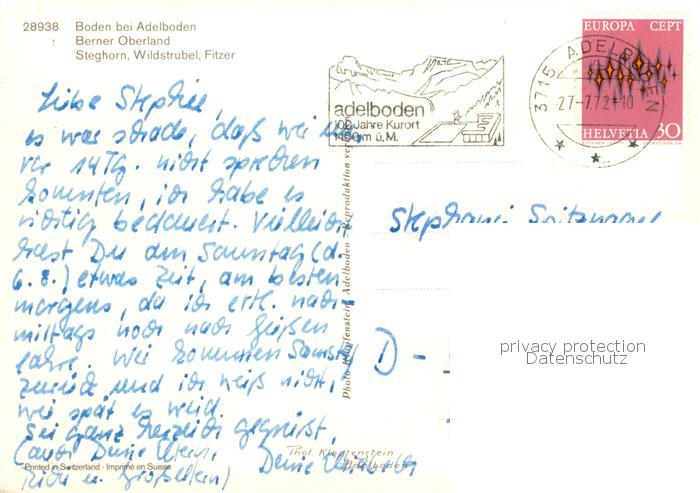 28938 Boden bei Adelboden
Berner Oberland
Steghorn, Wildstrubel, Fitzer
adelboden
100 Jahre Kurort
1400m ü.M.
3715 ADELBODEN
27-7.72-10
EUROPA CEPT
HELVETIA 30
Liebe Stephie,
es war schade, daß wir uns
vor 14 Tg. nicht sprechen
konnten, ich habe es
richtig bedauert. Vielleicht
hast Du am Sonntag (d.
6.8.) etwas Zeit, am besten
morgens, da ich evtl. nach-
mittags noch nach Gießen
fahre. Wir kommen Samstag
zurück und ich weiß nicht,
wie spät es wird.
Sei ganz herzlich gegrüßt,
(auch Deine Eltern,
und Großeltern) Deine
Stephanie
D -
Photo Klopfenstein, Adelboden - Reproduktion
Phot. Klopfenstein
Adelboden
Printed in Switzerland - Imprimé en Suisse
privacy protection
Datenschutz